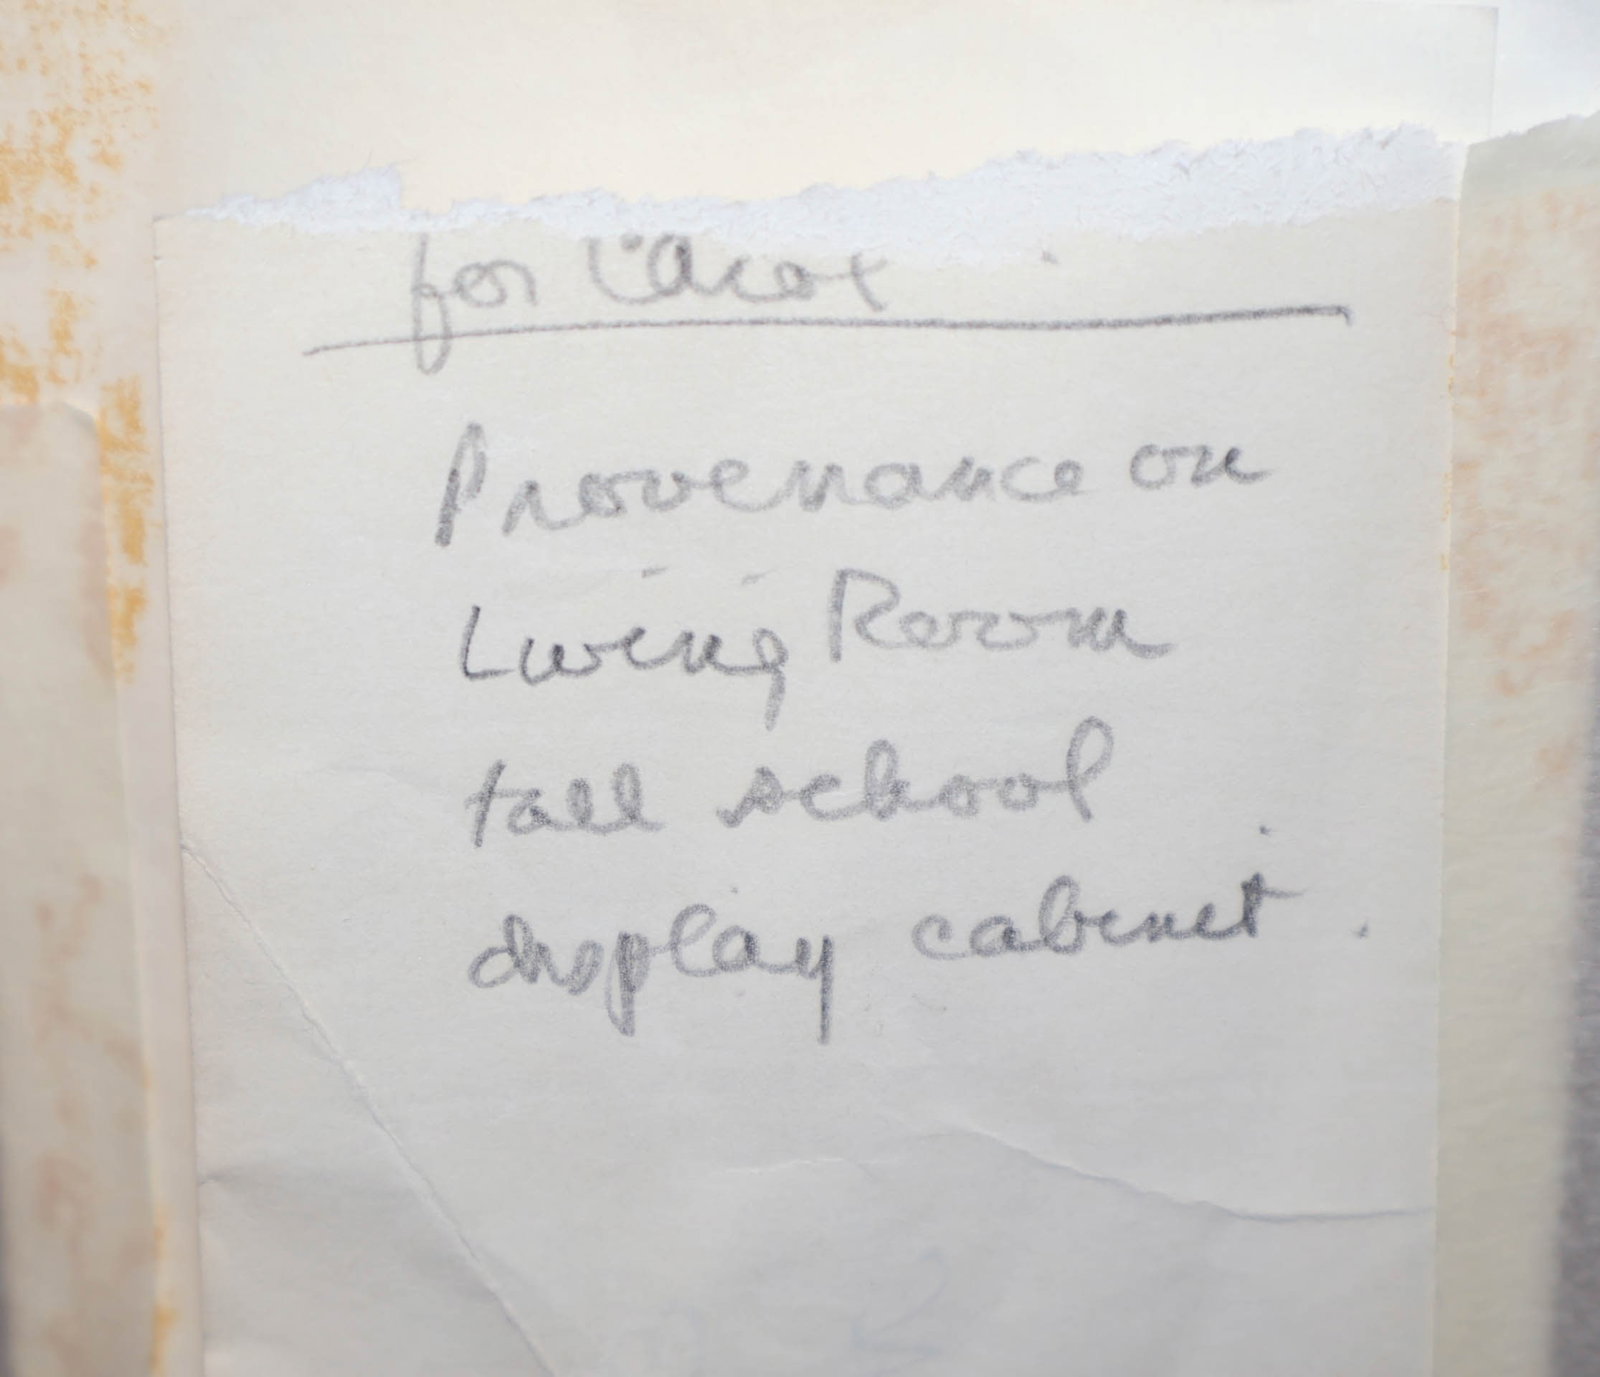 for Carol
Provenance on
Living Room
tall school
display cabinet.